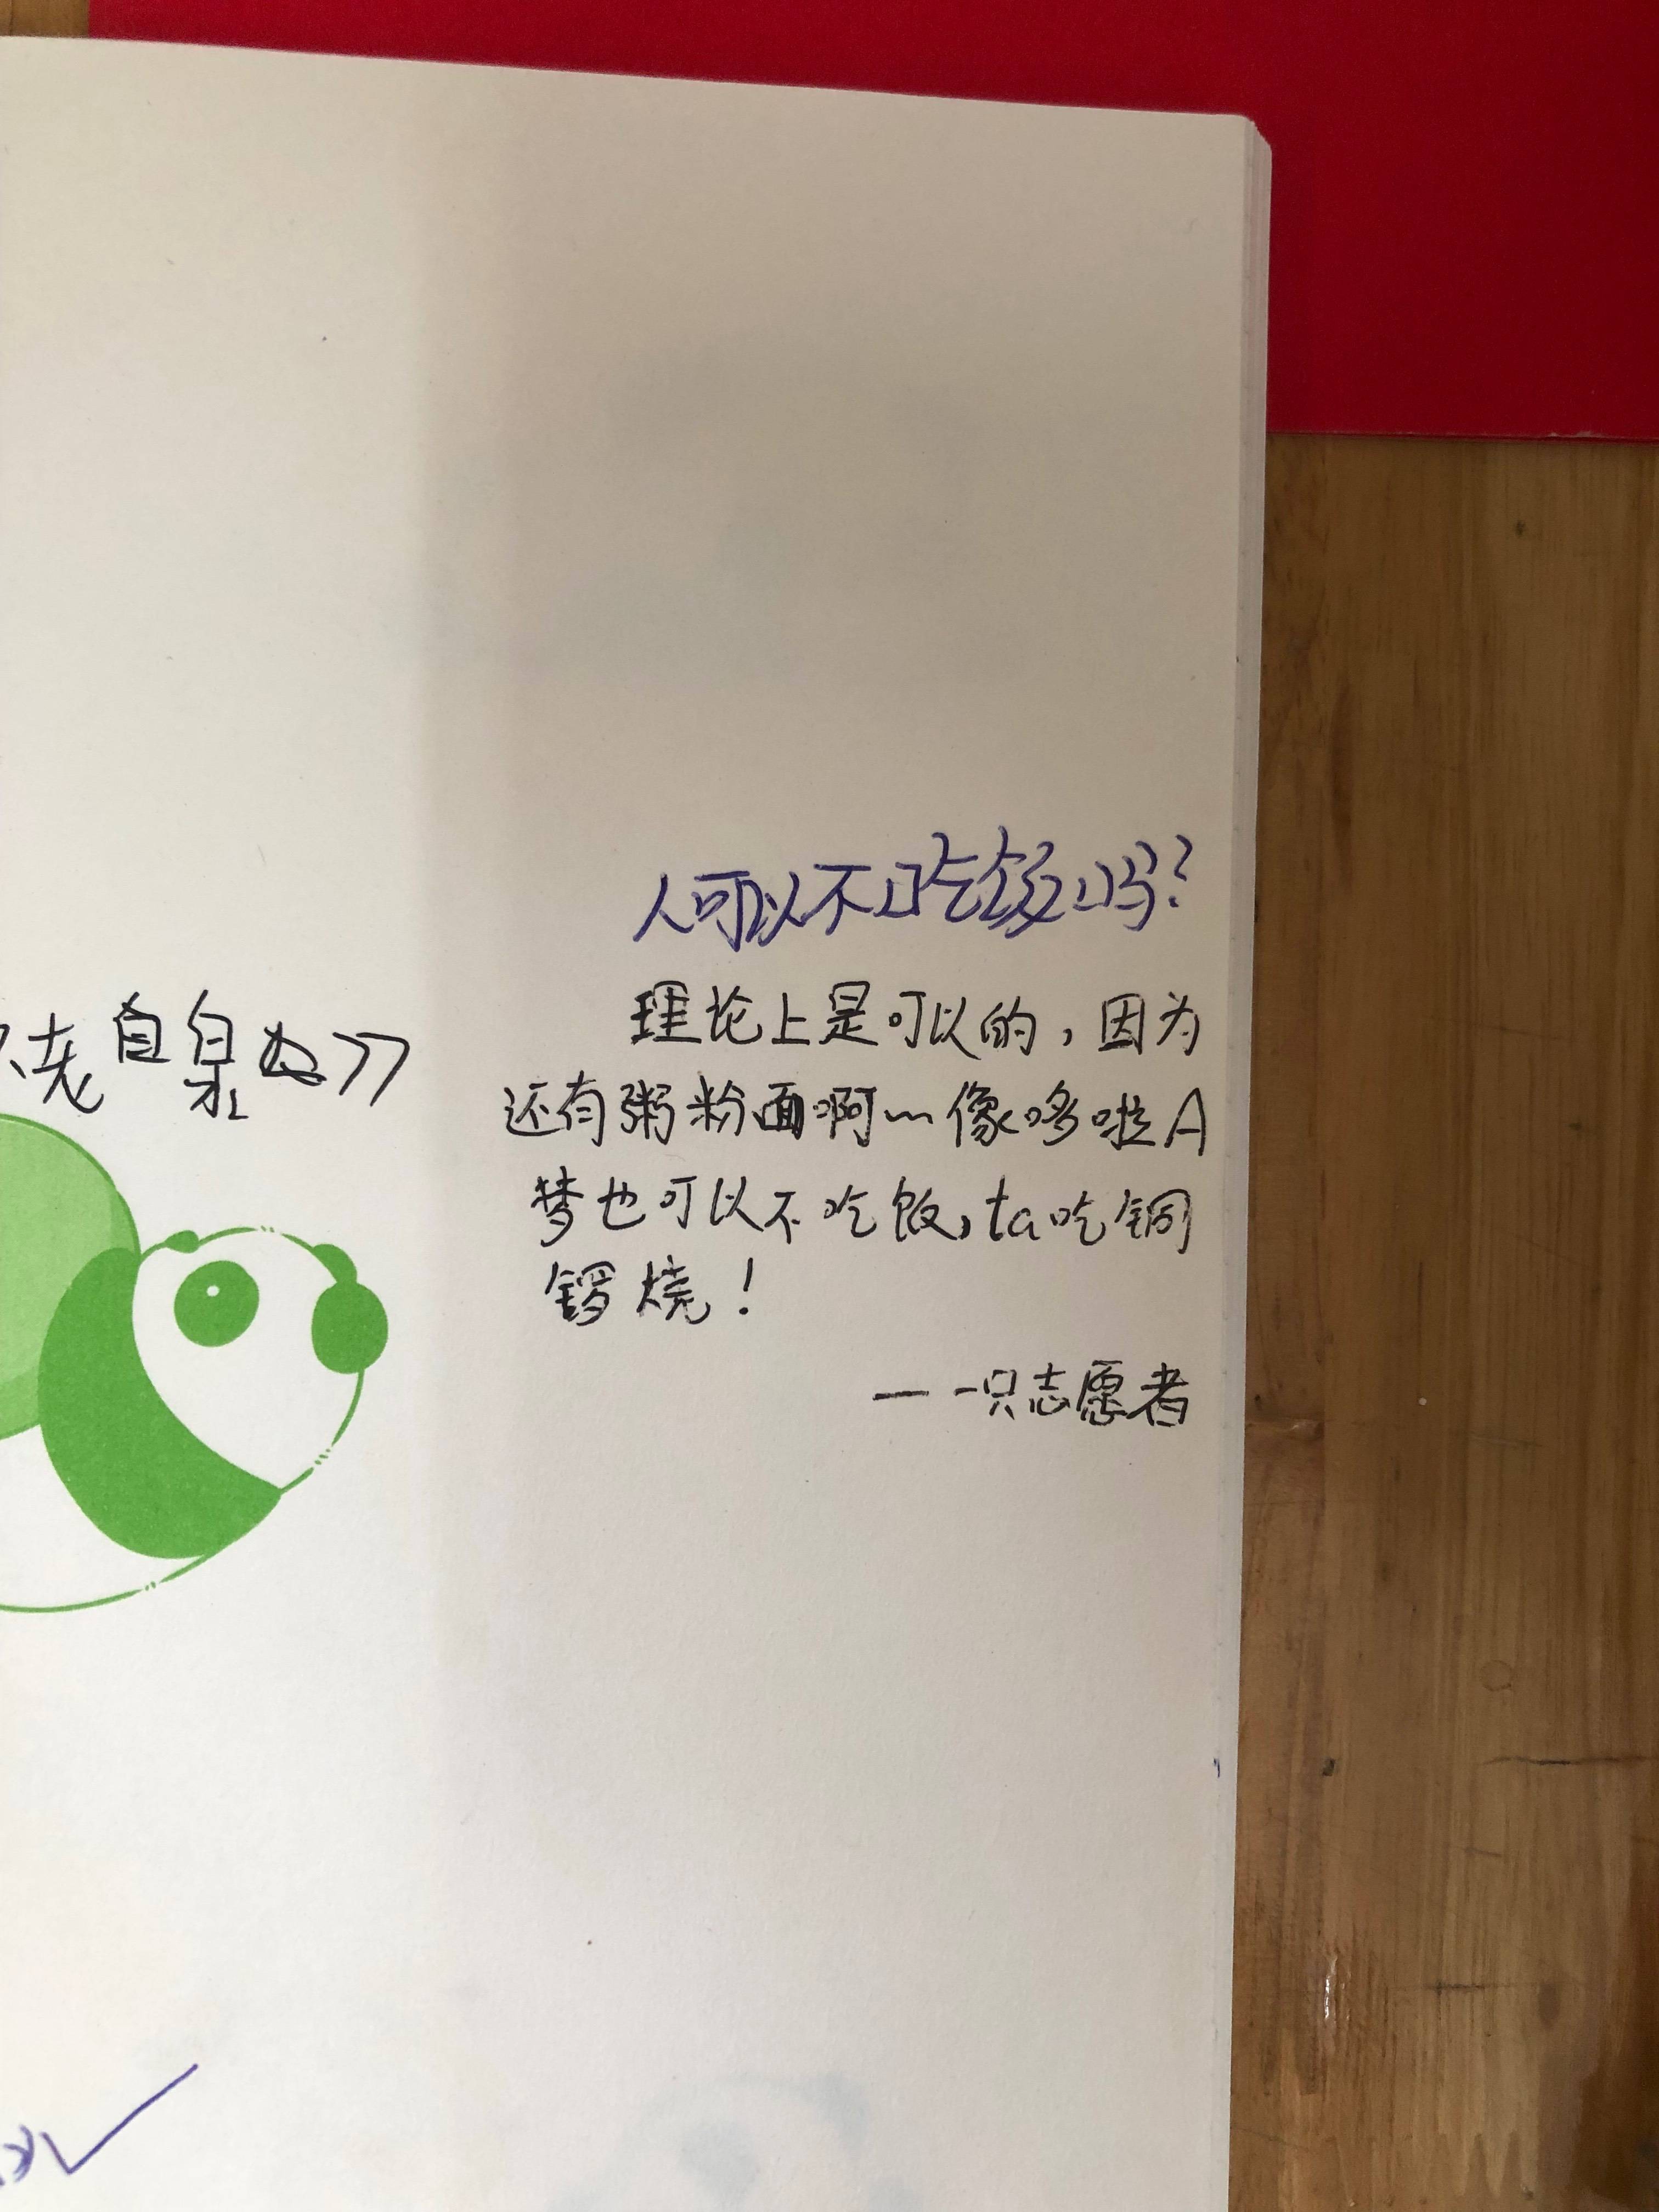 人可以不吃饭吗?
理论上是可以的，因为
还有粥粉面啊~像哆啦A
梦也可以不吃饭，ta吃铜
锣烧！
—一只志愿者